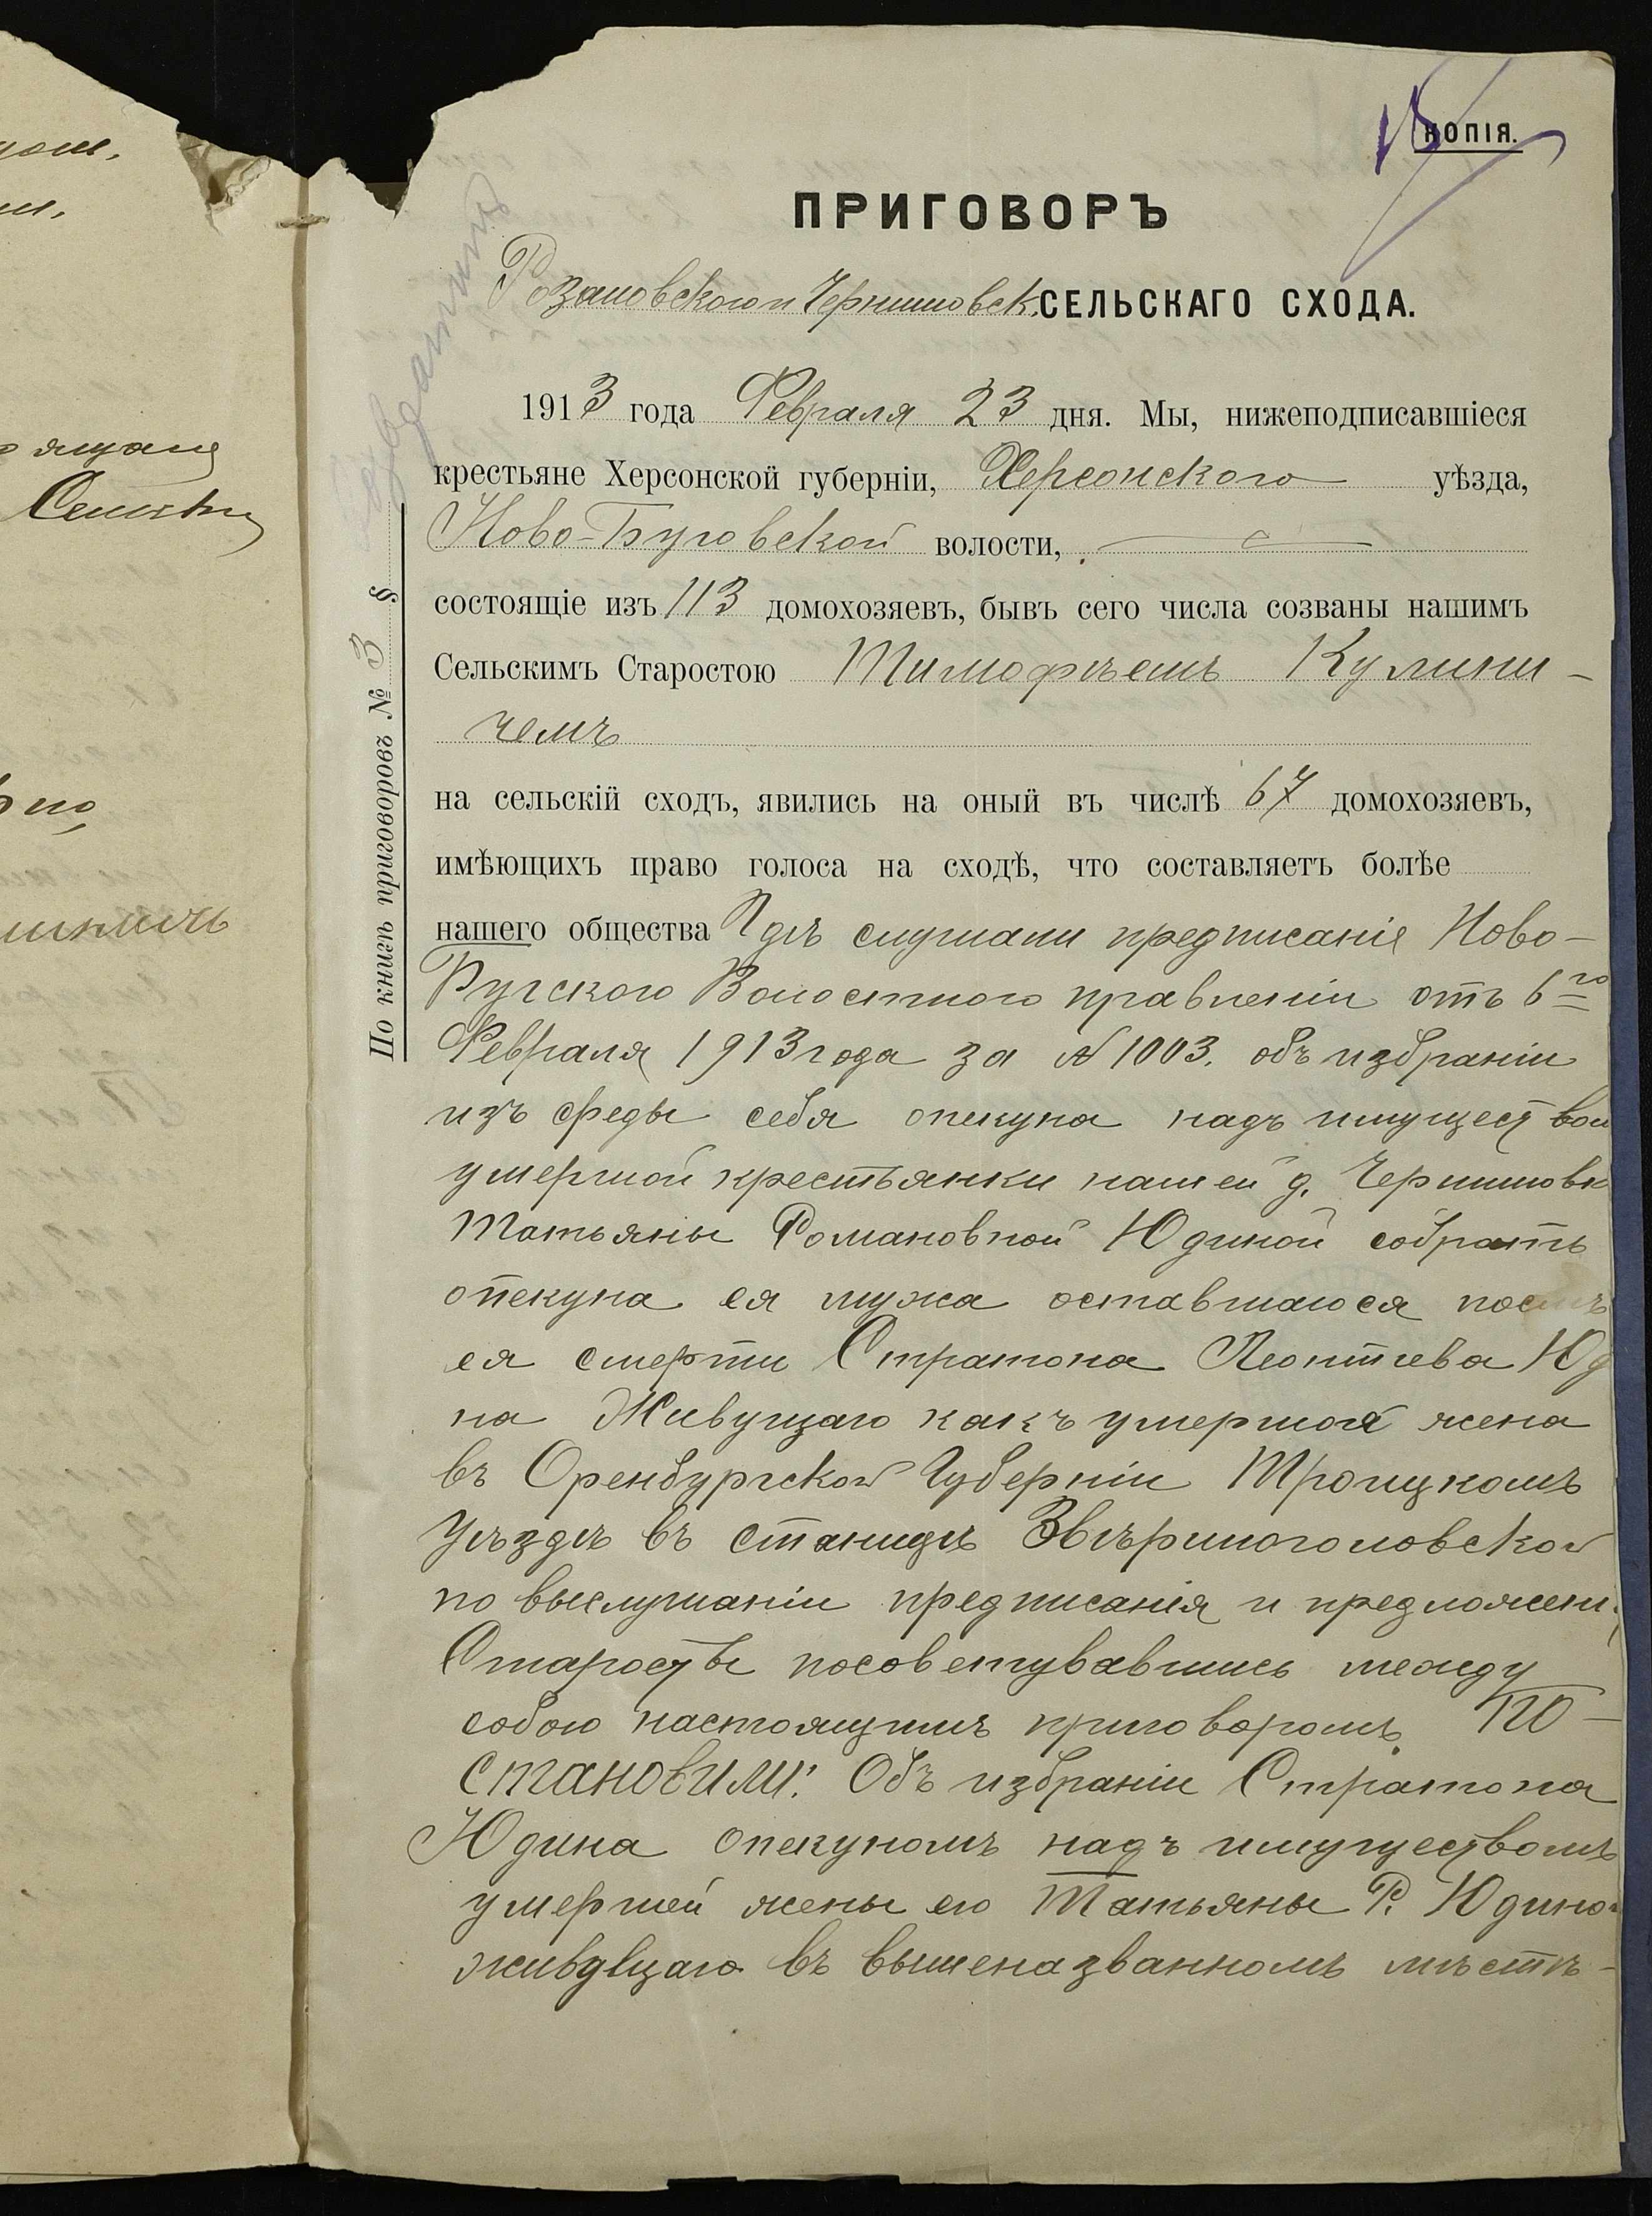 КОПІЯ.
ПРИГОВОРЪ
Розановского и Чернишовск. СЕЛЬСКАГО СХОДА.
1913 года Февраля 23 дня. Мы, нижеподписавшіеся
крестьяне Херсонской губерніи, Херсонского уѣзда,
Ново-Буговской волости,
состоящіе изъ 113 домохозяевъ, бывъ сего числа созваны нашимъ
Сельскимъ Старостою Тимофѣемъ Кулини-
чемъ
на сельскій сходъ, явились на оный въ числѣ 67 домохозяевъ,
имѣющихъ право голоса на сходѣ, что составляетъ болѣе
нашего общества Гдѣ слушали предписаніе Ново-
Бугского Волостного правленіи отъ 6го
Февраля 1913 года за № 1003. объ избраніи
изъ среды себя опекуна надъ имуществом
умершой крестьянки нашей д. Чернишовк
Татьяны Романовной Юдиной собрать
опекуна ея мужа оставшагося послѣ
ея смерти Стратона Леонтиева Юд
на Живущаго какъ умершоя жена
въ Оренбургской Губерніи Троицкомъ
Уѣздѣ въ станицѣ Звѣриноголовской
по выслушаніи предписанія и предложени
Старосты посоветувавшись между
собою настоящимъ приговоромъ ПО-
становили: Объ избраніи Стратона
Юдина опекуномъ надъ имуществомъ
умершей жены его Татьяны Р. Юдиной
живущаго въ вышеназванномъ мѣстѣ-
По книгѣ приговоровъ № 3 §